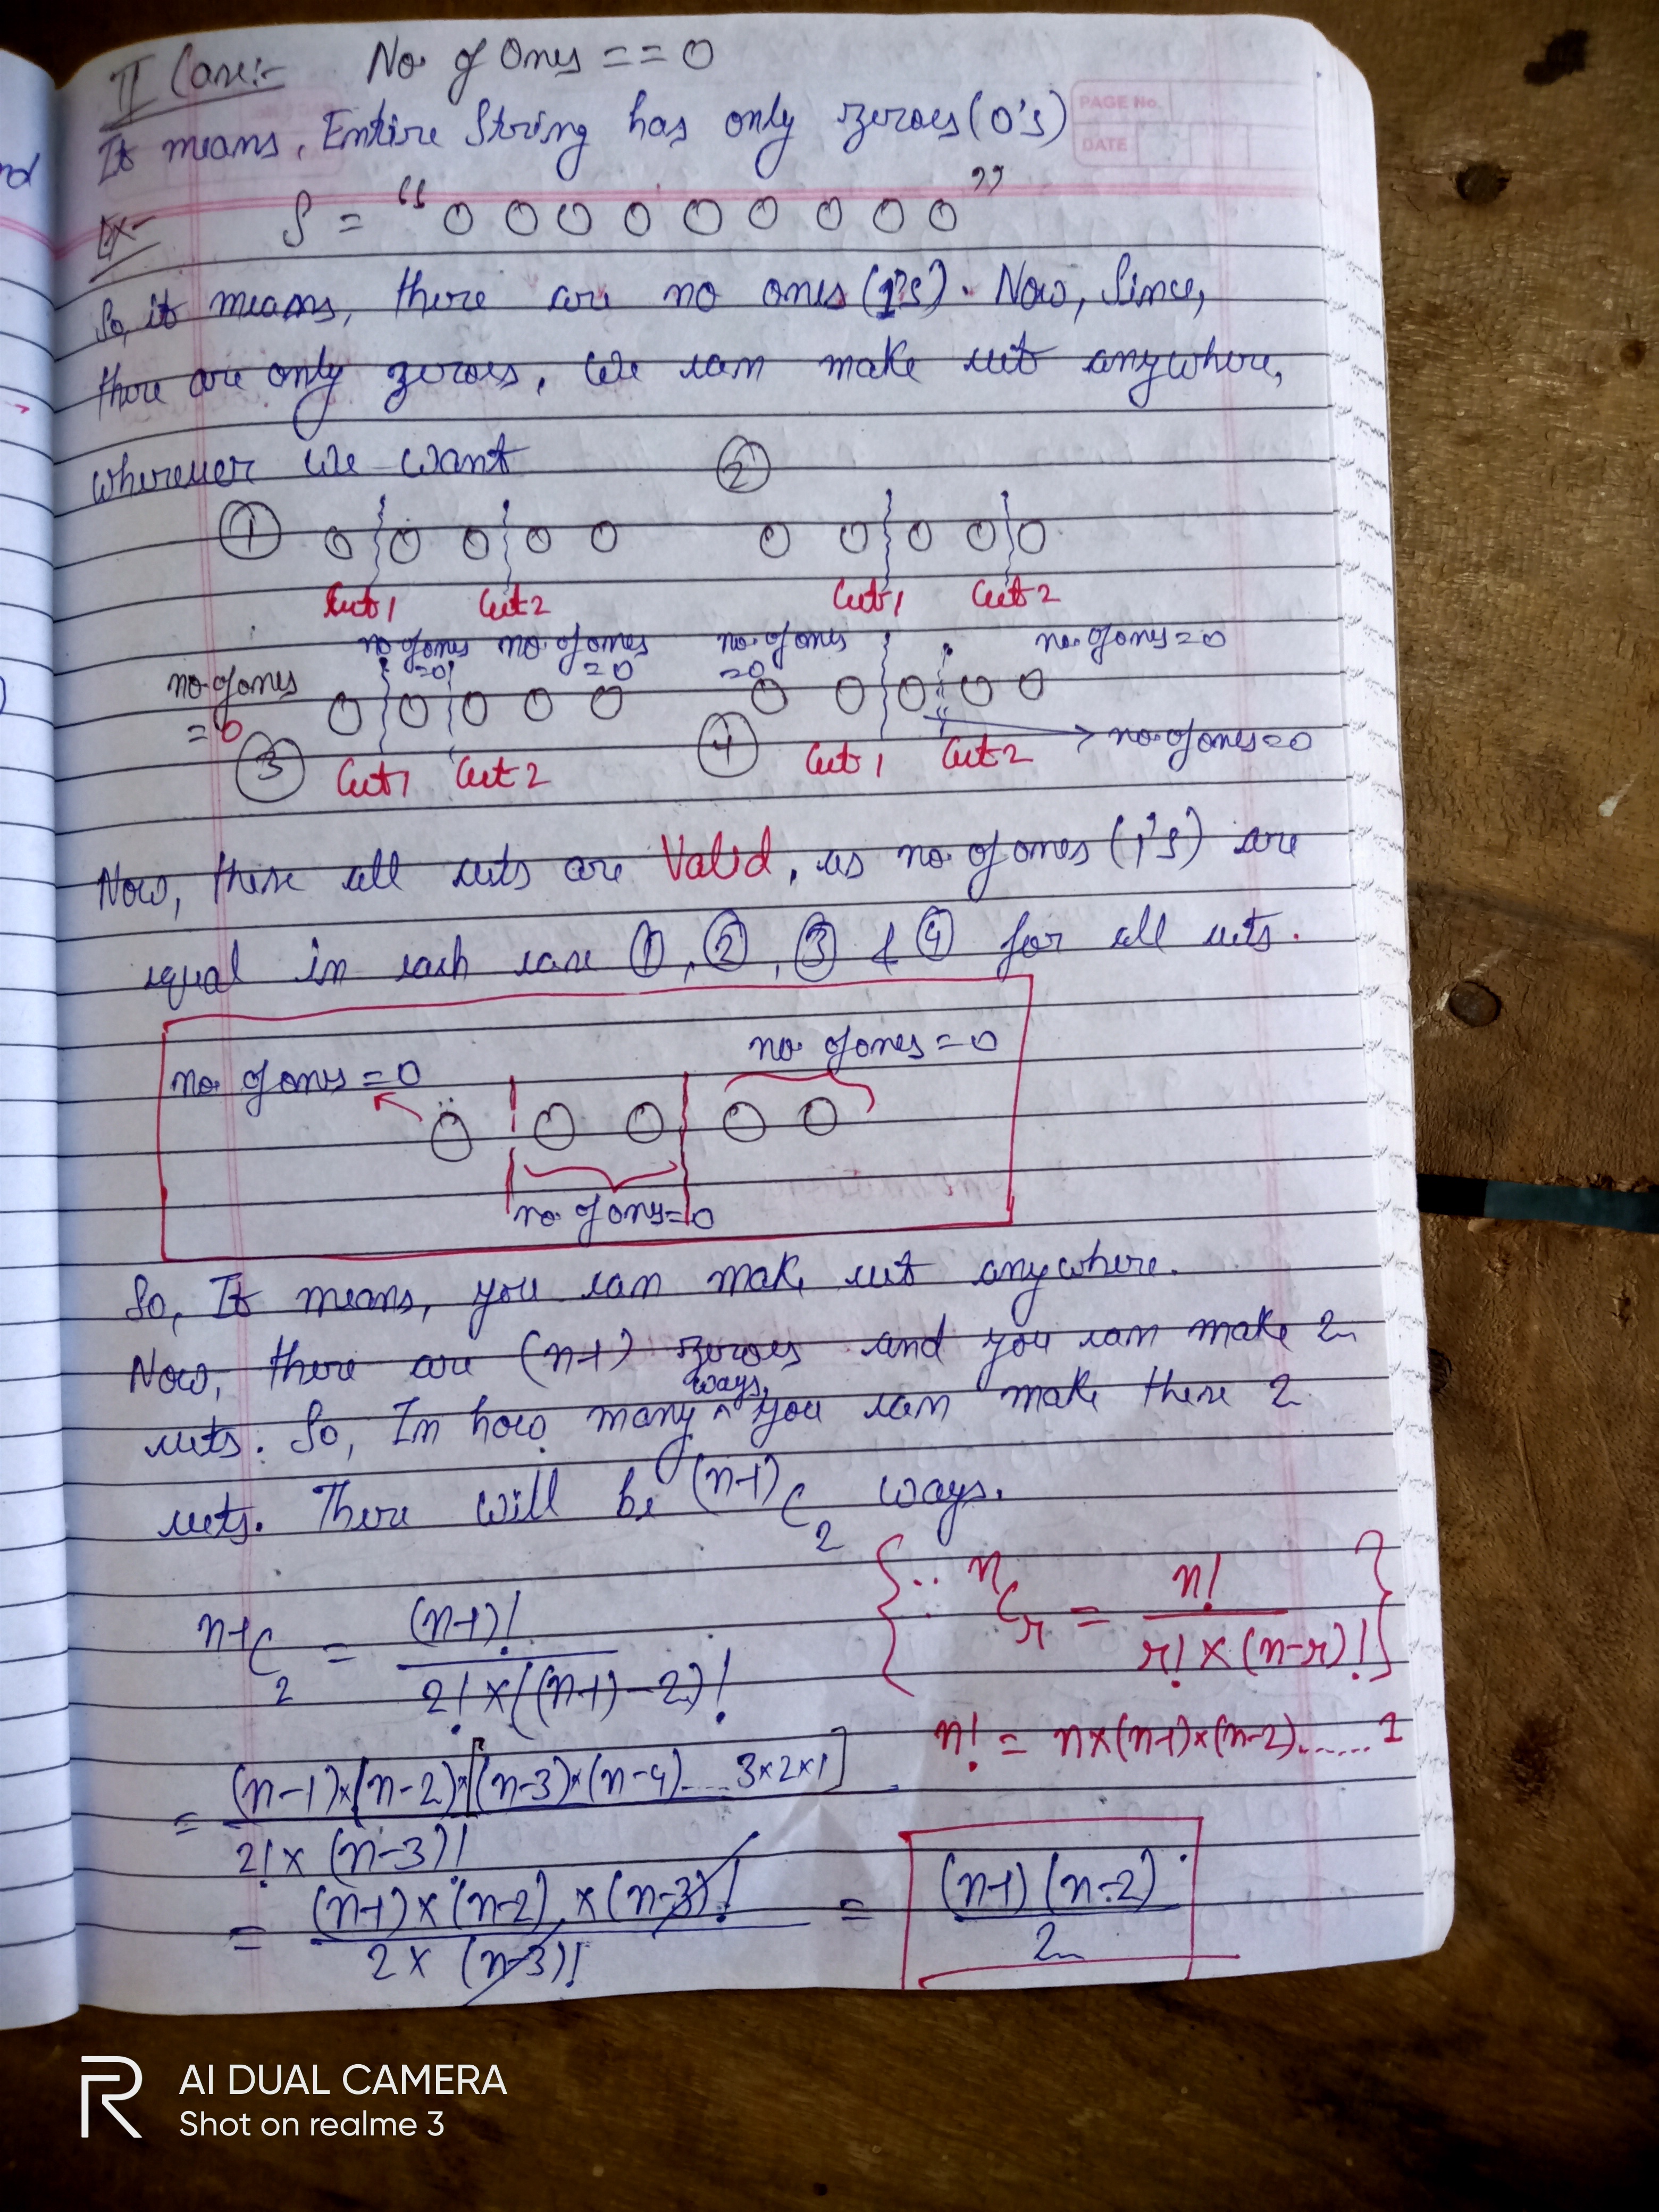 II Case:- No. of Ones == 0
PAGE No.
DATE
It means, Entire String has only zeroes (0's)
Ex- S = " 0 0 0 0 0 0 0 0 0 "
So, it means, there are no ones (1's). Now, Since,
there are only zeroes, We can make cut anywhere,
wherever We want
① 0 0 0 0 0
② 0 0 0 0 0
Cut 1 Cut 2 Cut 1 Cut 2
no. of ones = 0 no. of ones = 0 no. of ones = 0 no. of ones = 0
no. of ones = 0
0 0 0 0 0 0 0 0 0 0
③ Cut 1 Cut 2 ④ Cut 1 Cut 2 no. of ones = 0
Now, these all cuts are Valid, as no. of ones (1's) are
equal in each case ①, ②, ③ & ④ for all cuts.
no. of ones = 0 no. of ones = 0
0 0 0 0 0
no. of ones = 0
So, It means, you can make cut anywhere.
Now, there are (n-1) zeroes and you can make 2
cuts. So, In how many ways, you can make these 2
cuts. There will be (n-1)C2 ways.
{∵ nCr = n! / r! × (n-r)!}
n-1C2 = (n-1)! / 2! × ((n-1)-2)!
n! = n×(n-1)×(n-2)......1
= (n-1)×(n-2)×[(n-3)×(n-4)....3×2×1] / 2! × (n-3)!
= (n-1)×(n-2)×(n-3)! / 2 × (n-3)! = (n-1)(n-2) / 2
R AI DUAL CAMERA
Shot on realme 3